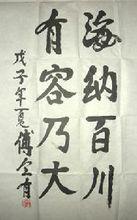 海纳百川
有容乃大
戊子年夏